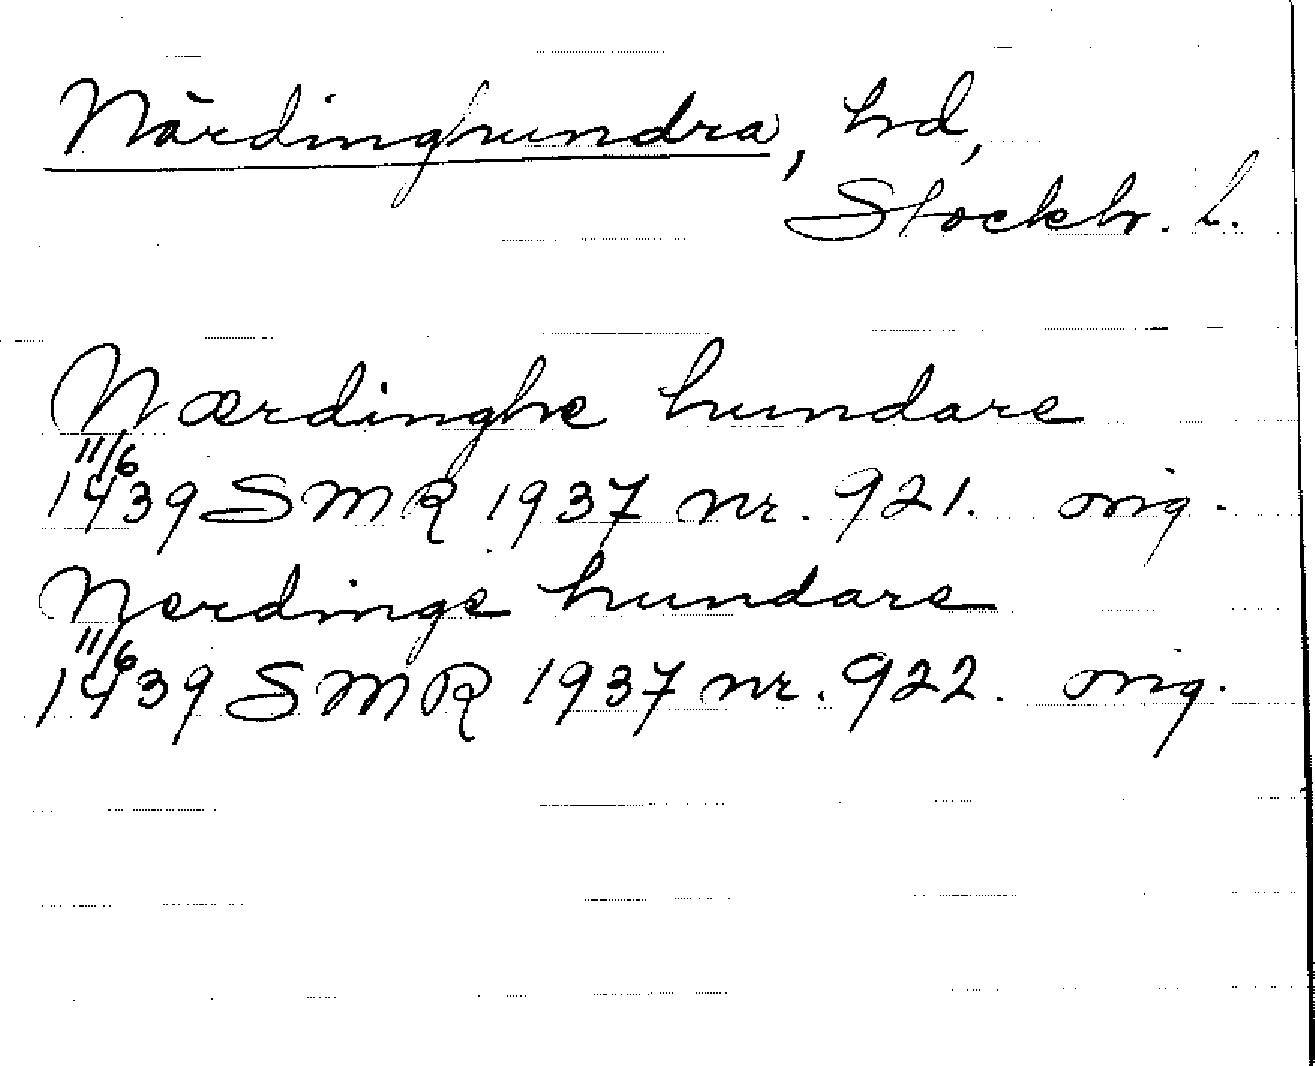 Närdinghundra, hd,
Stockh. l.
Nærdinghe hundare
11/6
1439 SMR 1937 nr. 921. orig.
Nerdinge hundare
11/6
1439 SMR 1937 nr. 922. orig.